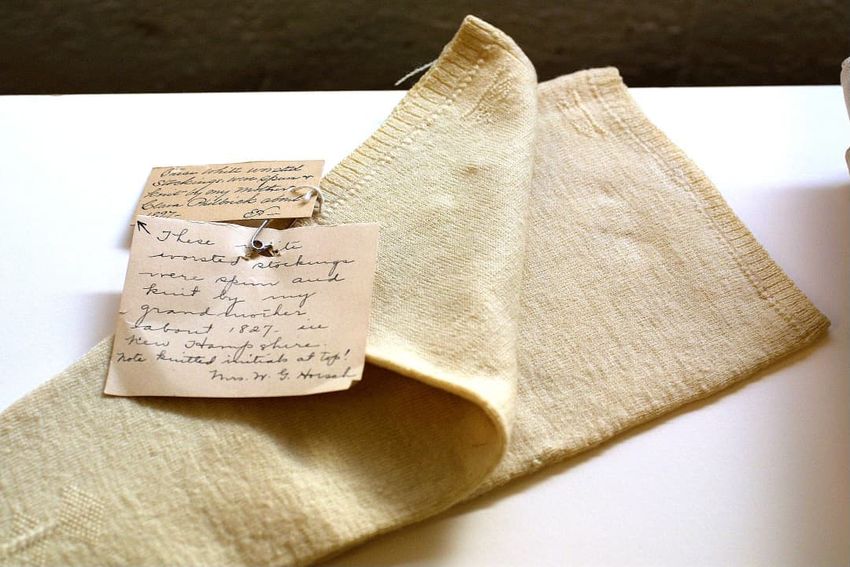 white worsted
Stockings were spun &
knit by my mother
Clara about
1827
These white
worsted stockings
were spun and
knit by my
grandmother
about 1827 in
New Hampshire.
Note knitted initials at top!
Mrs. W. G.